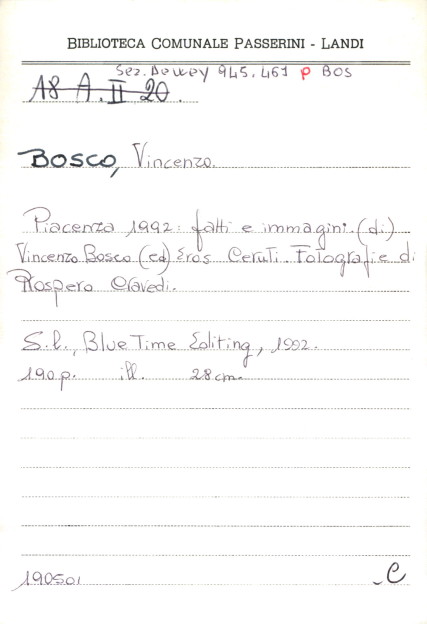 BIBLIOTECA COMUNALE PASSERINI - LANDI
Sez. Dewey 945.461 p BOS
A8 A. II 20.
BOSCO, Vincenzo.
Piacenza 1992: fatti e immagini. (di)
Vincenzo Bosco (ed) Eros Ceruti. Fotografie di
Prospero Cravedi.
S.l., Blue Time Editing, 1992.
190 p. ill. 28 cm.
190501 -C